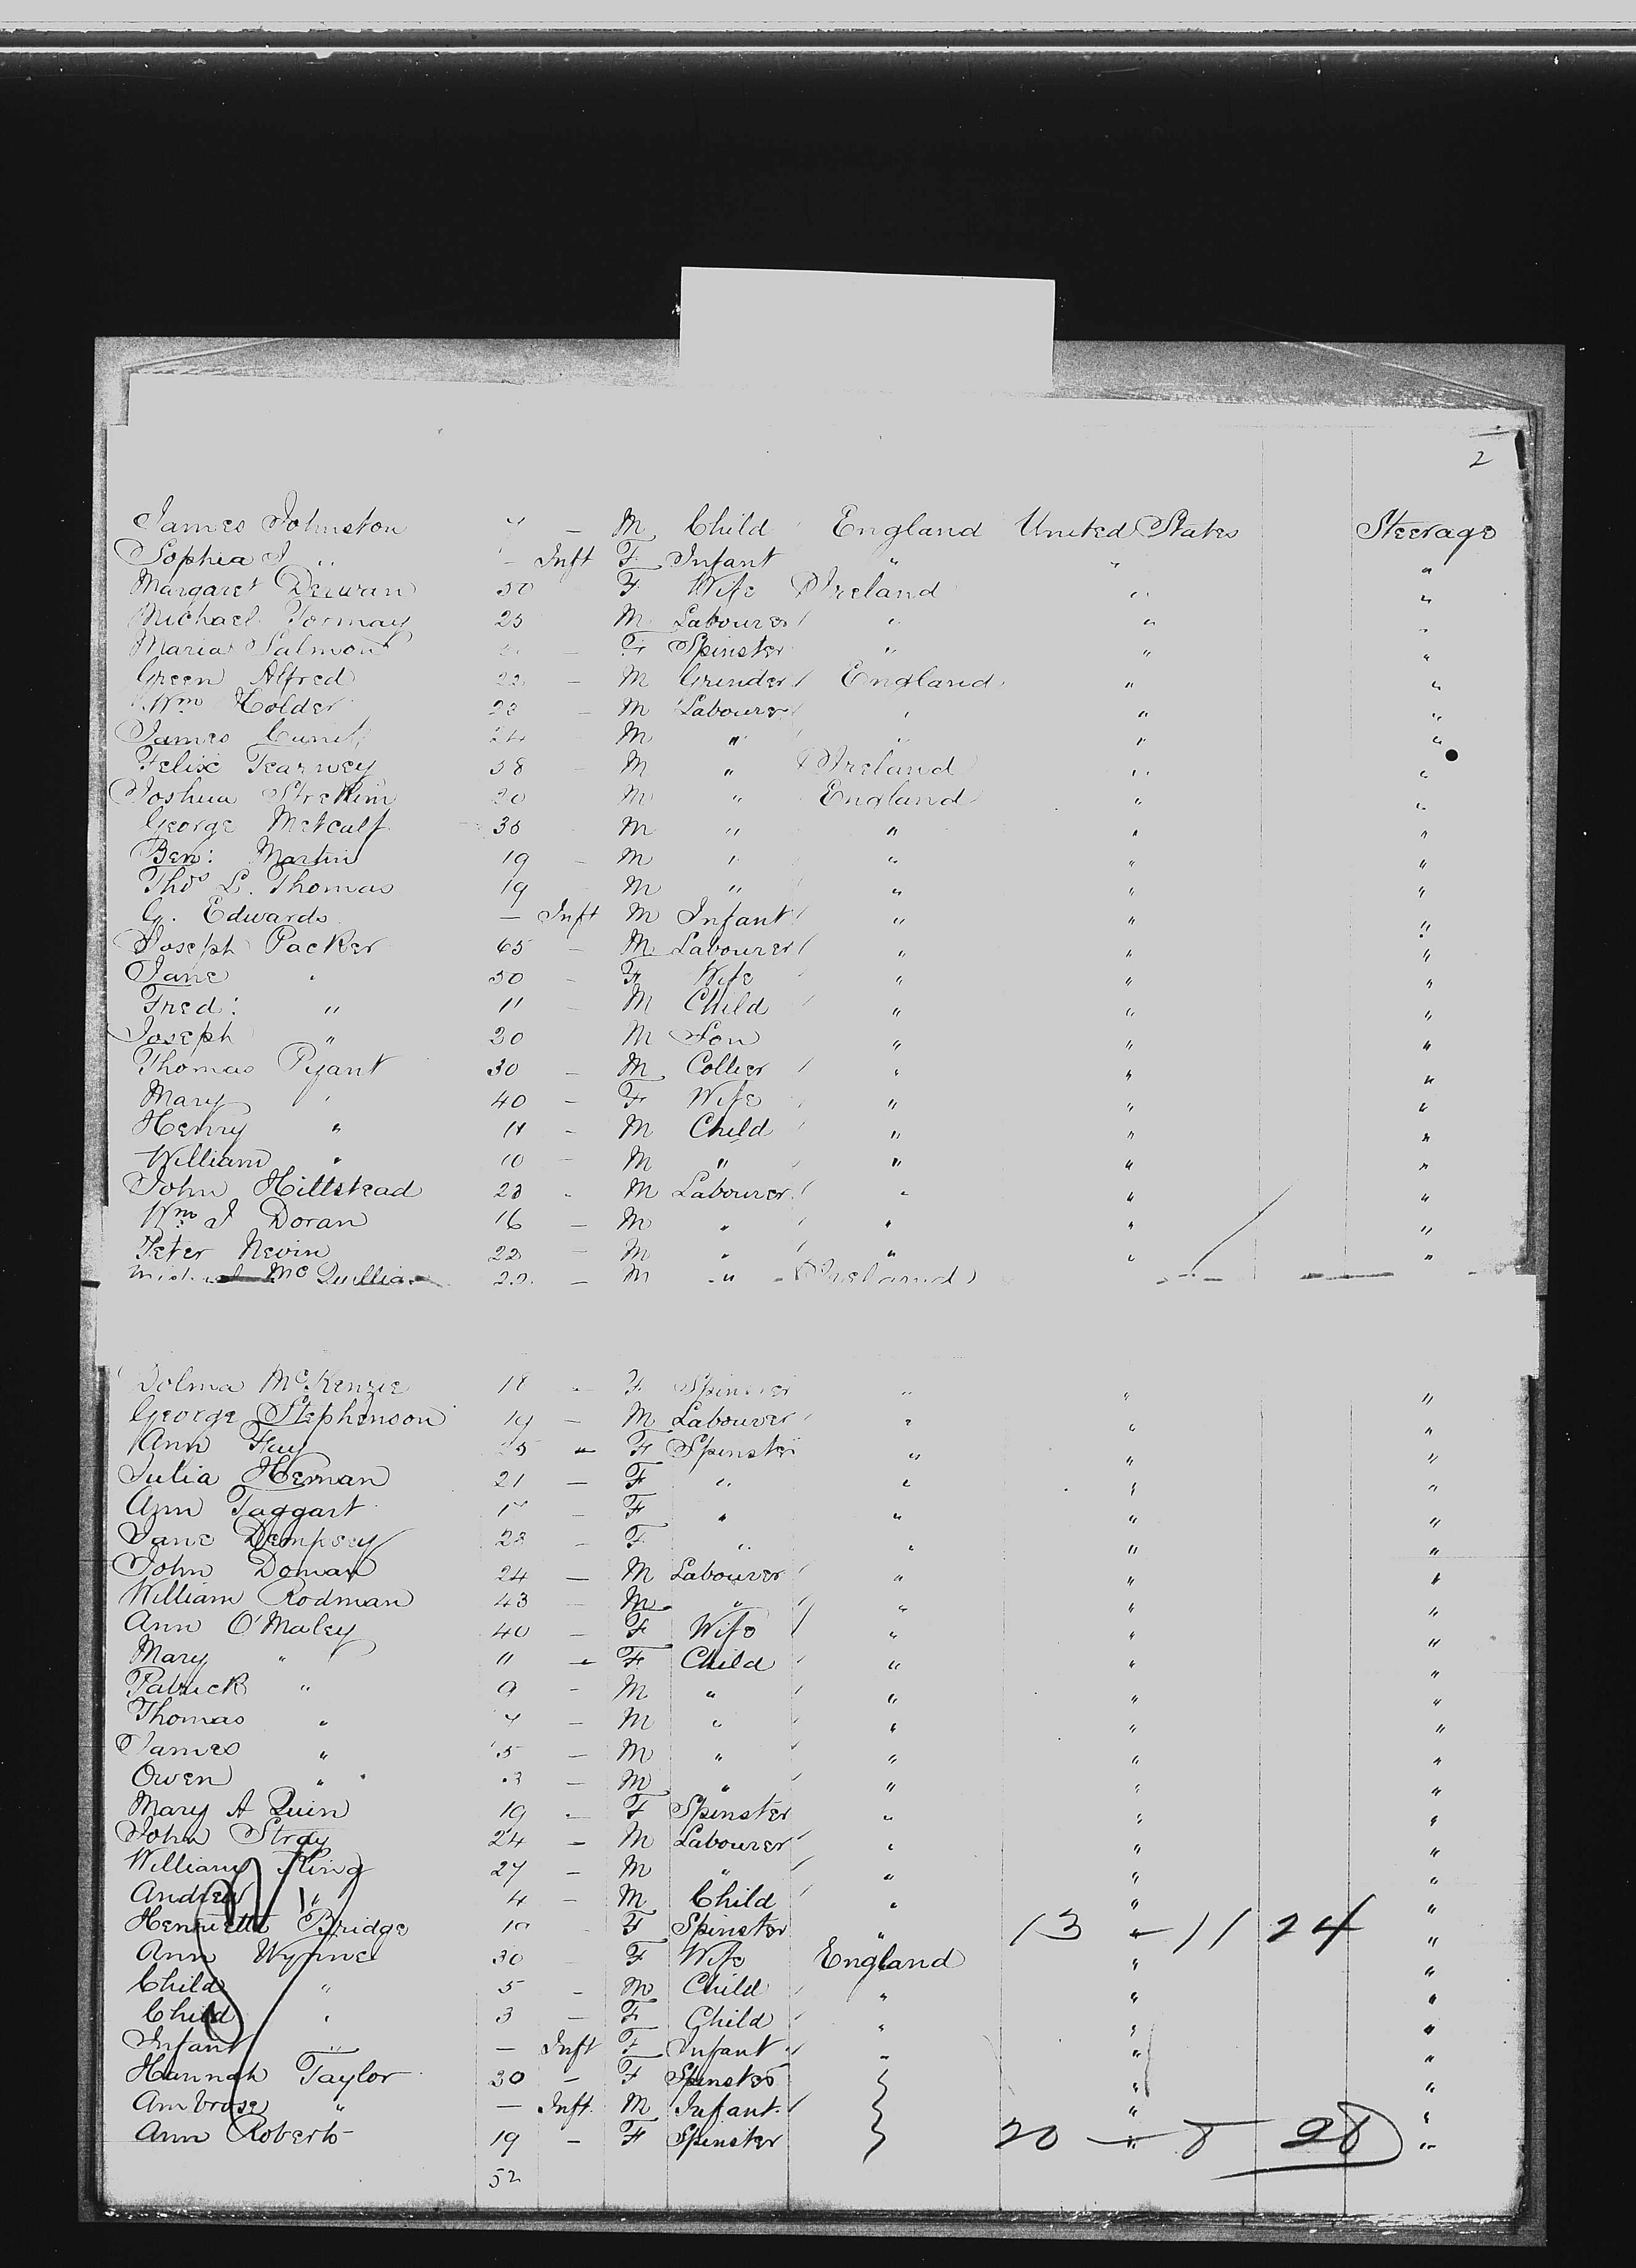 2
James Johnston 7 — M Child England United States Steerage
Sophia J " — Inft F Infant " " "
Margaret 50 F Wife Ireland " "
Michael Tormay 25 M Labourer " " "
Maria Salmon — F Spinster " " "
Green Alfred 22 — M Grinder England " "
Wm Holder 23 — M Labourer " " "
James 24 M " " " "
Felix Tearney 38 M " Ireland " "
Joshua 20 M " England " "
George Metcalf 38 M " " " "
Ben: Martin 19 — M " " " "
Thos L. Thomas 19 M " " " "
G. Edwards — Inft M Infant " " "
Joseph Packer 65 — M Labourer " " "
Jane " 50 — F Wife " " "
Fred: " 11 — M Child " " "
Joseph " 20 M Son " " "
Thomas Pyant 30 — M Collier " " "
Mary " 40 — F Wife " " "
Henry " 11 — M Child " " "
William " 10 — M " " " "
John Hillstead 23 - M Labourer " " "
Wm J Doran 16 — M " " " "
Peter Nevin 22 — M " " " "
Mc Quillia 22 — M " Ireland
Dolma McKenzie 18 - F Spinster " " "
George Stephenson 19 — M Labourer " " "
Ann Fay 25 — F Spinster " " "
Julia Heman 21 — F " " " "
Ann Taggart — F " " " "
Jane Dempsey 23 — F " " " "
John Doman 24 — M Labourer " " "
William Rodman 43 — M " " " "
Ann O'Maley 40 — F Wife " " "
Mary " 11 — F Child " " "
Patrick " 9 - M " " " "
Thomas " 7 — M " " " "
James " 5 — M " " " "
Owen " 3 — M " " " "
Mary A Quin 19 — F Spinster " " "
John Stray 24 — M Labourer " " "
William King 27 — M " " " "
Andrew " 4 — M Child " " "
Henrietta Bridge F Spinster " 13 " — 11 24 "
Ann Wynne 30 F Wife England " "
Child " 5 - M Child " " "
Child " 3 — F Child " " "
Infant " — Inft F Infant " " "
Hannah Taylor 30 — F Spinster " "
Ambrose " — Inft. M Infant " "
Ann Roberts 19 — F Spinster 20 — " 8 28 "
52